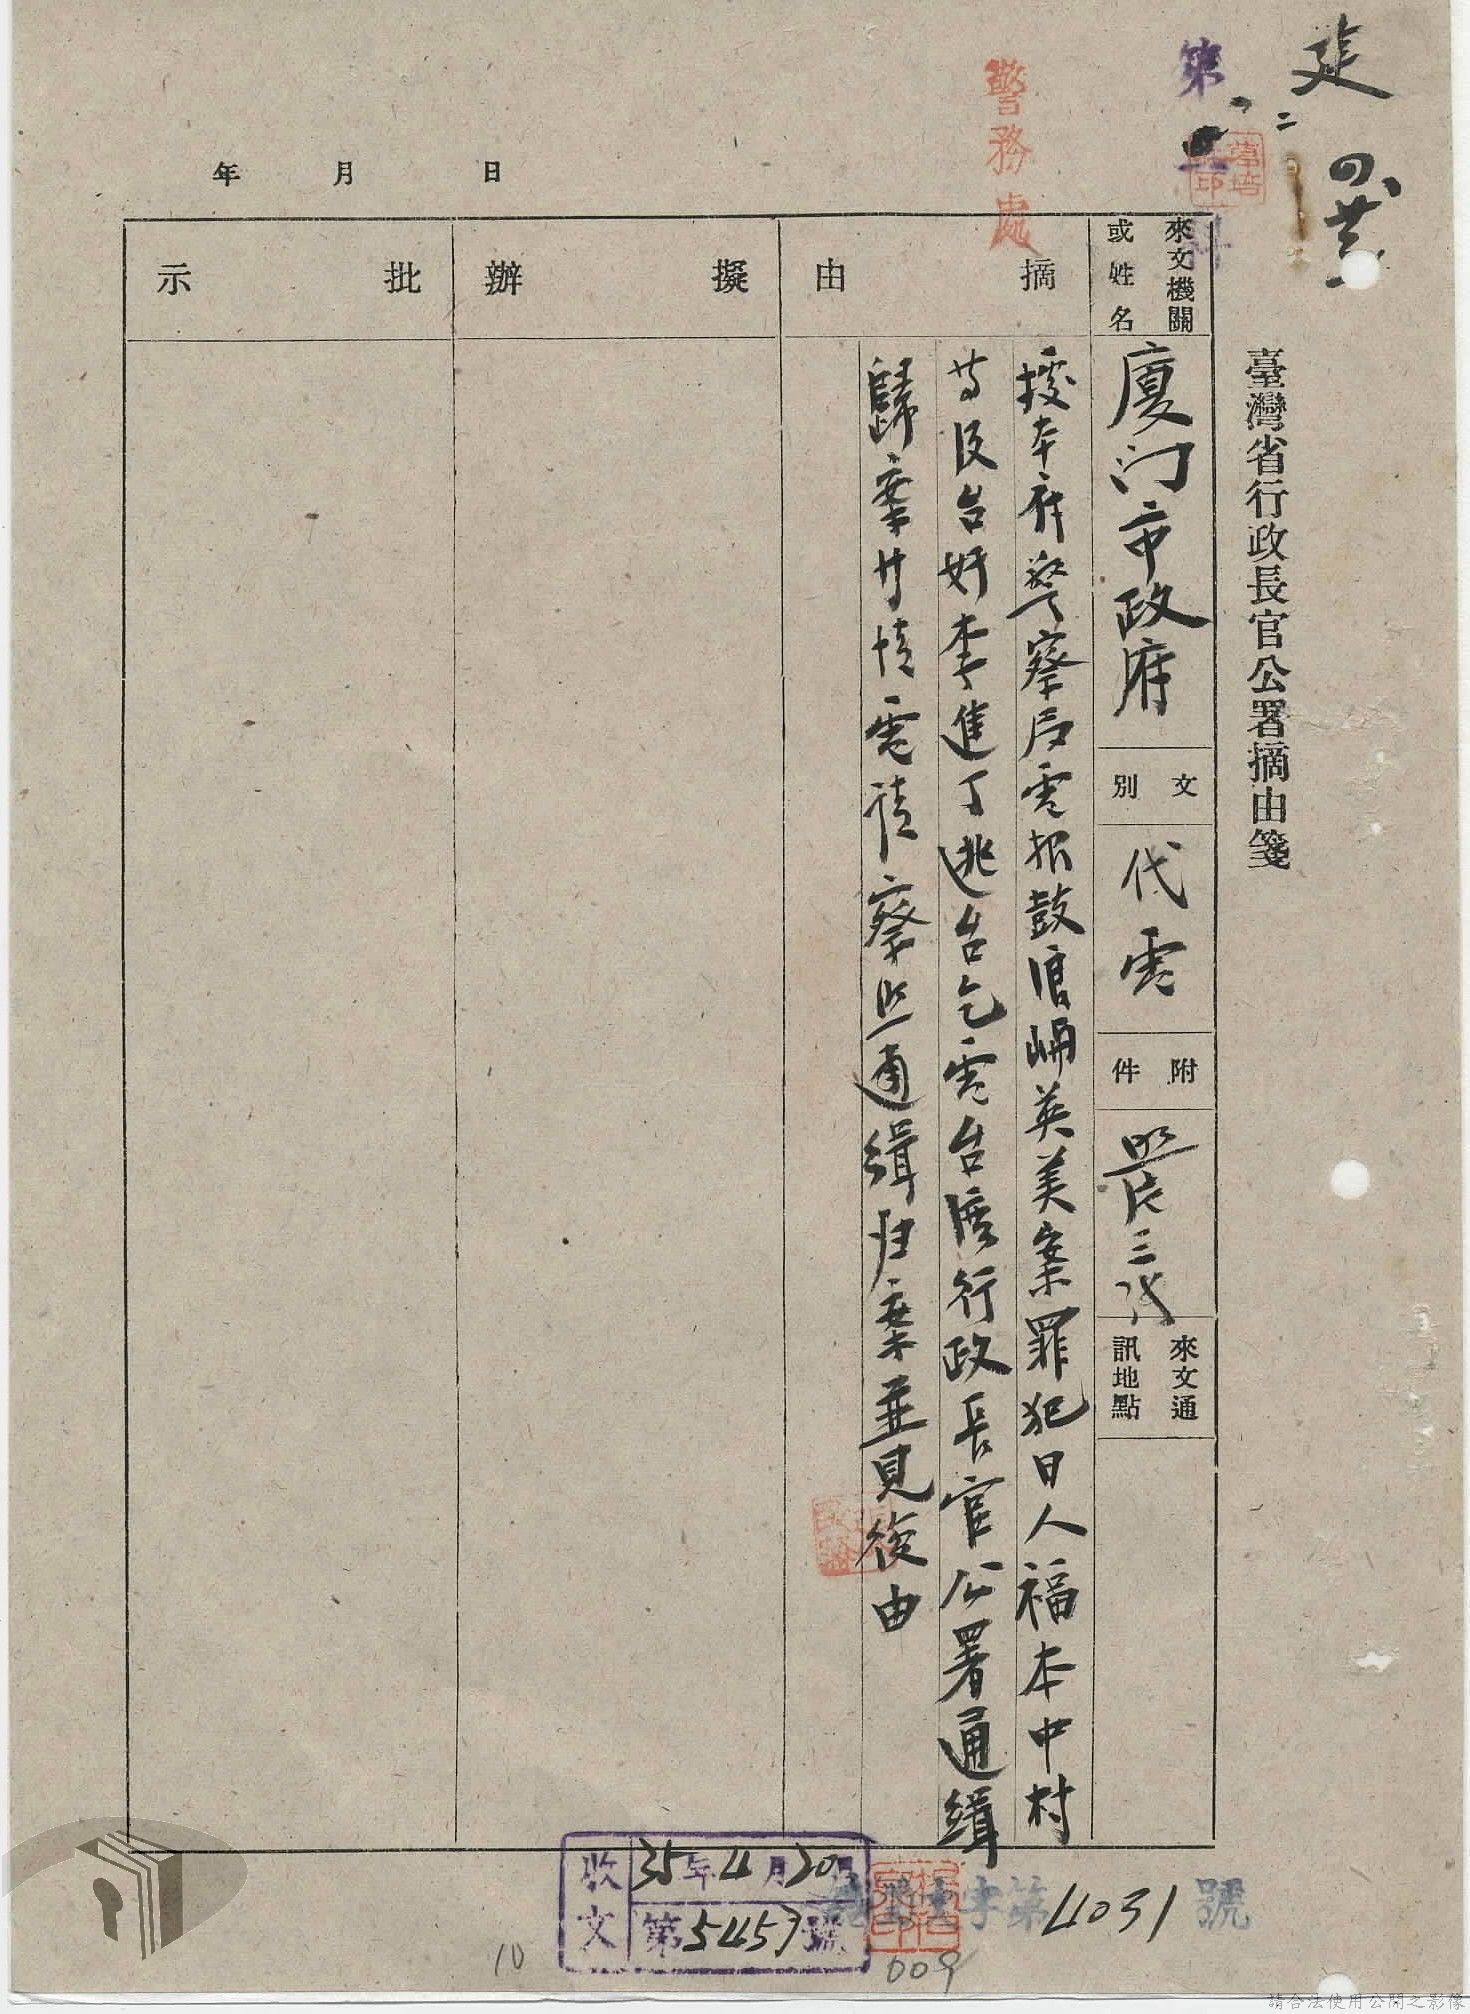 臺灣省行政長官公署摘由箋
來文機關或姓名
廈门市政府
文別
代電
附件
照片三張
來文通訊地點
摘由
據本府警察局電报鼓浪嶼英美案罪犯日人福本中村
等及台奸李進丁逃台乞電台湾行政長官公署通緝
歸案等情電請察照通緝归案並見復由
擬辦
批示
年 月 日
警務處
第 科
收文
35年4月20日
第5457號
字第4031號
10
009
請合法使用公開之影像